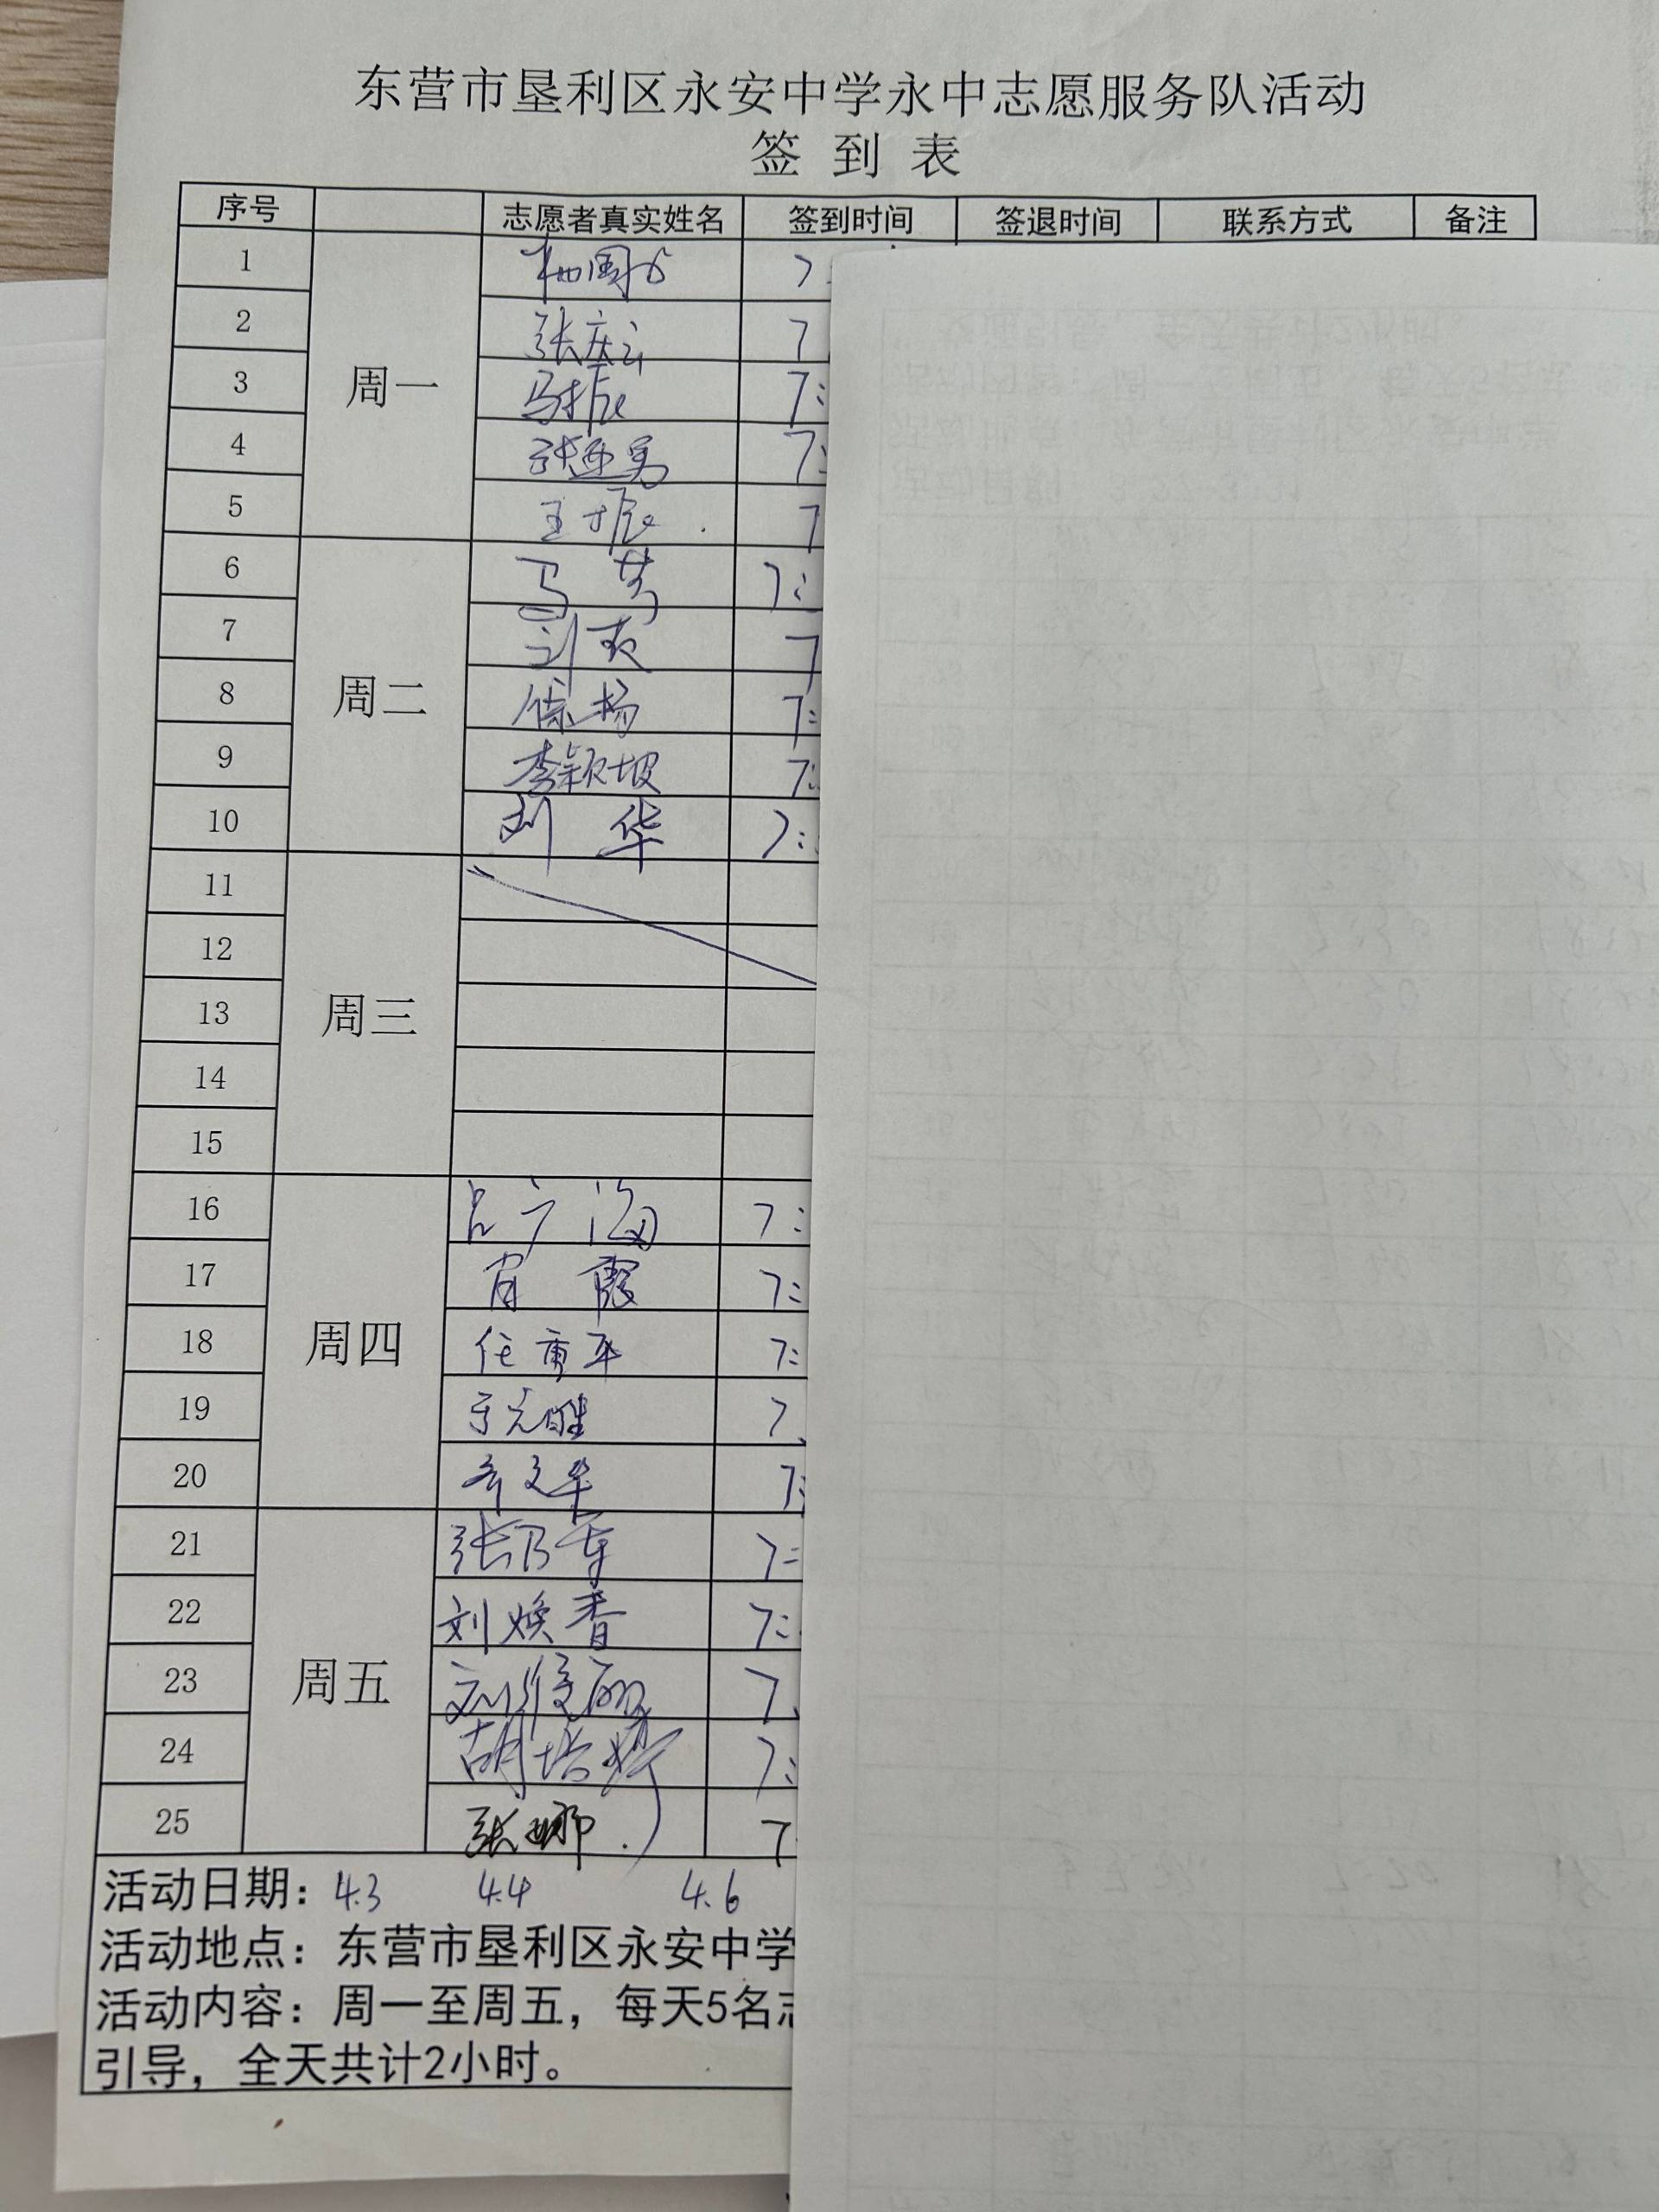 东营市垦利区永安中学永中志愿服务队活动
签 到 表
序号 志愿者真实姓名 签到时间 签退时间 联系方式 备注
周一
1 7:
2 张庆云 7
3 马振 7:
4 张连勇 7:
5 王振 7
周二
6 马芳 7:
7 刘 7
8 徐杨 7:
9 李颖坡 7:
10 刘华 7:
周三
11
12
13
14
15
周四
16 吕广海 7:
17 肖霞 7:
18 任重平 7:
19 于光胜 7
20 齐文华 7:
周五
21 张乃军 7:
22 刘焕香 7:
23 刘俊丽 7
24 胡培婷 7:
25 张娜 7
活动日期：4.3 4.4 4.6
活动地点：东营市垦利区永安中学
活动内容：周一至周五，每天5名志
引导，全天共计2小时。